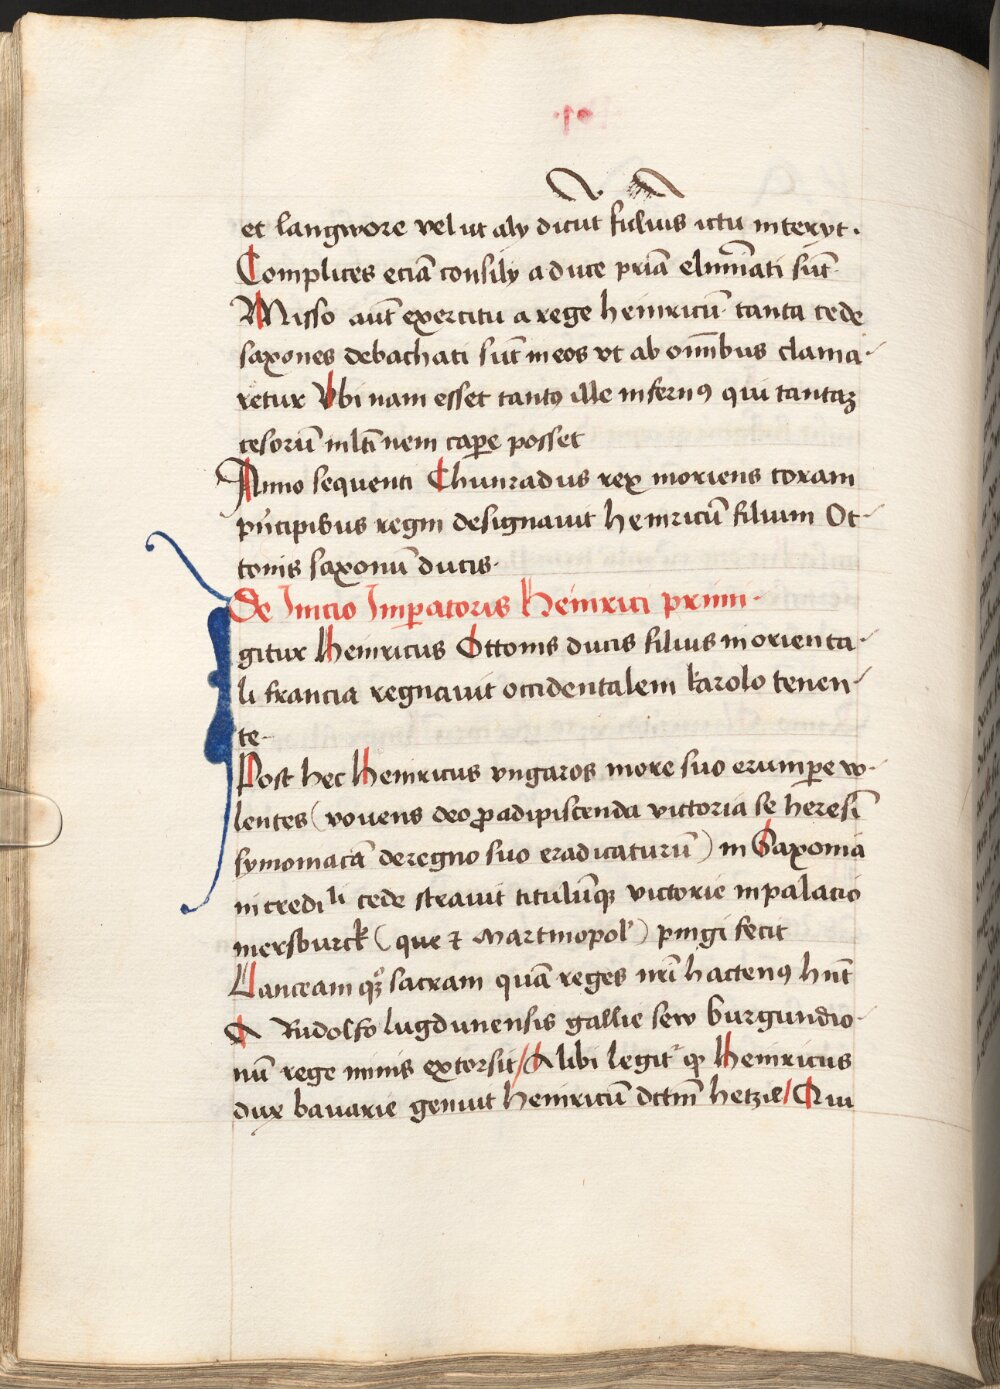 et langwore vel ut aly dicūt fulius ictu interyt.
Complices eciā consily a duce priā eliminati sūt
Misso aūt exercitu a rege heinricū tanta cede
saxones debachati sūt in eos vt ab omībus clama-
retur Vbi nam esset tantꝰ ille infernꝰ qui tantaꝫ
cesorū mltinem cape posset
Anno sequenti Chunradus rex moriens coram
pncipibus regni designauit heinricū filium Ot-
tonis saxonū ducis.
De Inicio Imperatoris Heinrici primi.
Igitur Heinricus Ottonis ducis filius in orienta-
li francia regnauit occidentalem karolo tenen-
te.
Post hec Heinricus vngaros more suo erumpere vo-
lentes (vouens deo pro adipiscenda victoria se heresī
symoniacā de regno suo eradicaturū) in Saxonia
incredili cede strauit titulūqꝫ victorie in palacio
mersburck (que ⁊ martinopol') pingi fecit
Lanceam qꝫ sacram quā reges nrī hactenꝰ hnt
A Rudolfo lugdunensis gallie sew burgundio-
nū rege minis extorsit/ Alibi legitr qꝫ Heinricus
dux bauarie genuit heinricū dctm hetzil/ Qui